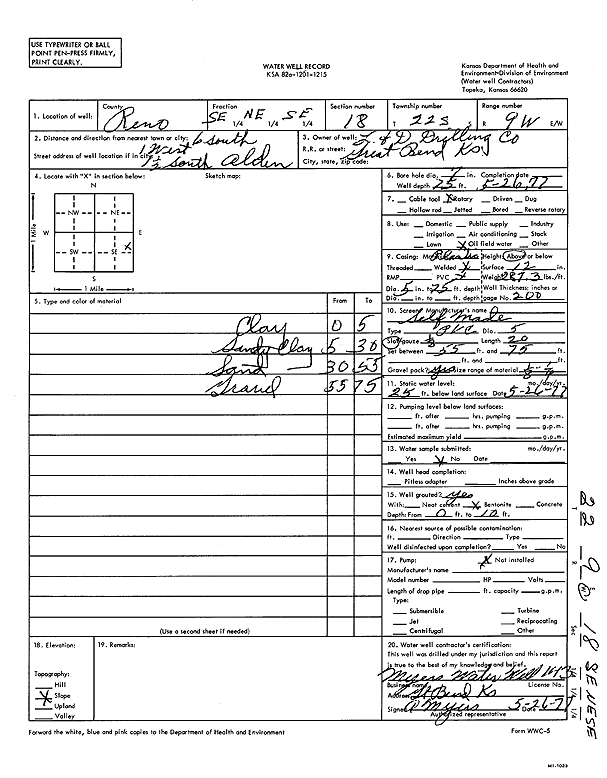 USE TYPEWRITER OR BALL
POINT PEN-PRESS FIRMLY,
PRINT CLEARLY.
WATER WELL RECORD
KSA 82a-1201-1215
Kansas Department of Health and
Environment-Division of Environment
(Water well Contractors)
Topeka, Kansas 66620
1. Location of well: County Reno Fraction SE 1/4 NE 1/4 SE 1/4 Section number 18 Township number T 22 S S Range number R 9 W E/W
2. Distance and direction from nearest town or city: 6 south
1 West
Street address of well location if in city: 1½ South Alden
3. Owner of well: & D Drilling Co
R.R. or street: Great Bend Ks
City, state, zip code:
4. Locate with "X" in section below: Sketch map:
N
NW NE
W E
SW SE X
S
1 Mile
1 Mile
5. Type and color of material From To
Clay 0 5
Sandy Clay 5 30
Sand 30 55
Gravel 55 75
(Use a second sheet if needed)
6. Bore hole dia. 9 in. Completion date
Well depth 25 ft. 5-26,77
7. Cable tool X Rotary Driven Dug
Hollow rod Jetted Bored Reverse rotary
8. Use: Domestic Public supply Industry
Irrigation Air conditioning Stock
Lawn X Oil field water Other
9. Casing: Material Plastic Height: Above or below
Threaded Welded X Surface 12 in.
RMP PVC X Weight 287.3 lbs./ft.
Dia. 5 in. to 75 ft. depth Wall Thickness: inches or
Dia. in. to ft. depth gage No. 200
10. Screen: Manufacturer's name
Self Made
Type PVC Dia. 5
Slot/gauze Length 20
Set between 55 ft. and 75 ft.
ft. and ft.
Gravel pack? yes Size range of material
11. Static water level: mo./day/yr.
25 ft. below land surface Date 5-26-77
12. Pumping level below land surfaces:
ft. after hrs. pumping g.p.m.
ft. after hrs. pumping g.p.m.
Estimated maximum yield g.p.m.
13. Water sample submitted: mo./day/yr.
Yes X No Date
14. Well head completion:
Pitless adapter Inches above grade
15. Well grouted? yes
With: Neat cement X Bentonite Concrete
Depth: From 0 ft. to 10 ft.
16. Nearest source of possible contamination:
ft. Direction Type
Well disinfected upon completion? Yes No
17. Pump: X Not installed
Manufacturer's name
Model number HP Volts
Length of drop pipe ft. capacity g.p.m.
Type:
Submersible Turbine
Jet Reciprocating
Centrifugal Other
18. Elevation:
Topography:
Hill
X Slope
Upland
Valley
19. Remarks:
20. Water well contractor's certification:
This well was drilled under my jurisdiction and this report
is true to the best of my knowledge and belief.
Myers Water Well
Business name License No.
Address Gt Bend Ks
Signed Myers Date 5-26-77
Authorized representative
T 22 R 9 W Sec 18 SE NE SE
1/4 1/4 1/4
Forward the white, blue and pink copies to the Department of Health and Environment
Form WWC-5